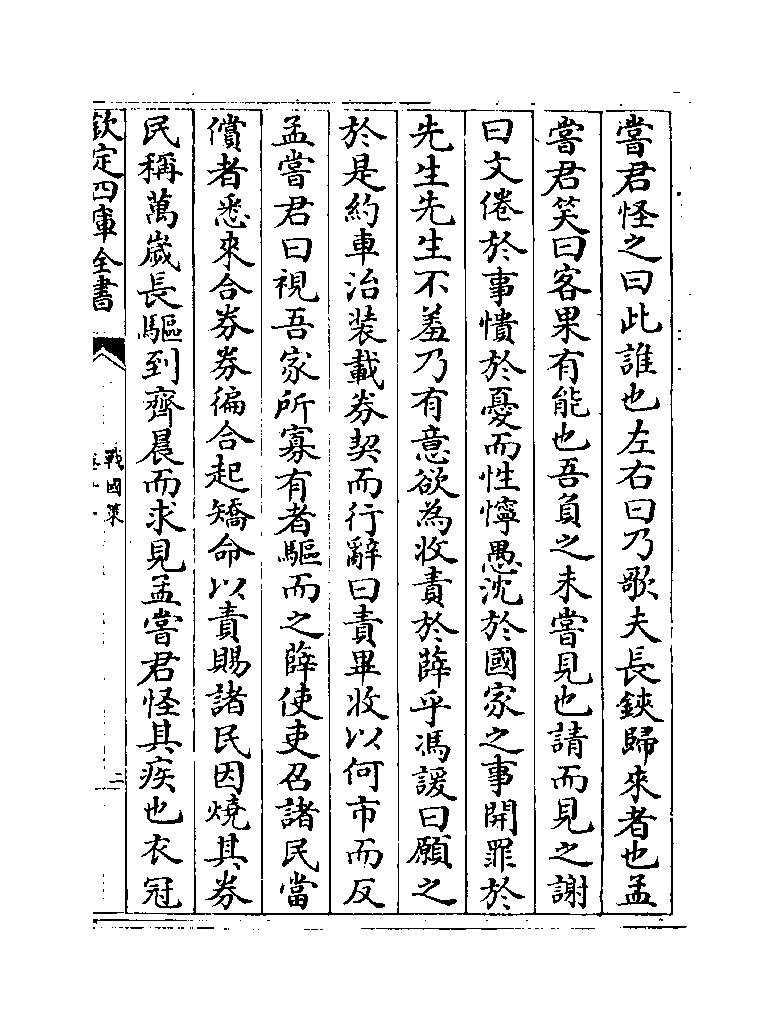 嘗君怪之曰此誰也左右曰乃歌夫長鋏歸來者也孟
嘗君笑曰客果有能也吾負之未嘗見也請而見之謝
曰文倦於事憒於憂而性懧愚沈於國家之事開罪於
先生先生不羞乃有意欲為收責於薛乎馮諼曰願之
於是約車治裝載券契而行辭曰責畢收以何市而反
孟嘗君曰視吾家所寡有者驅而之薛使吏召諸民當
償者悉來合券券徧合起矯命以責賜諸民因燒其券
民稱萬歲長驅到齊晨而求見孟嘗君怪其疾也衣冠
欽定四庫全書
戰國策
三